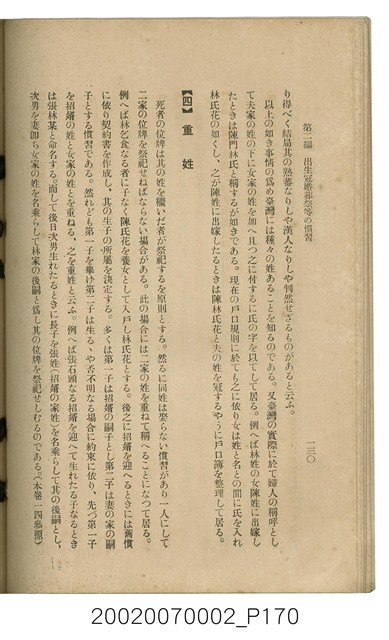 第二編 出生冠婚葬祭等の慣習
一三〇
り得べく結局其の熟蕃なりしや漢人なりしや判然せざるものがあると云ふ。
以上の如き事情の爲め臺灣には種々の姓あることを知るのである。又臺灣の實際に於て婦人の稱呼とし
て夫家の姓の下に女家の姓を加へ且つ之に付するに氏の字を以てして居る。例へば林姓の女陳姓に出嫁し
たときは陳門林氏と稱するが如きである。現在の戸口規則に於ても之に依り女は姓と名との間に氏を入れ
林氏花の如くし、之が陳姓に出嫁したるときは陳林氏花と夫の姓を冠するやうに戸口簿を整理して居る。
【四】 重姓
死者の位牌は其の姓を繼いだ者が祭祀するを原則とする。然るに同姓は娶らない慣習があり一人にして
二家の位牌を祭祀せねばならない場合がある。此の場合には二家の姓を重ねて稱へることになつて居る。
例へば林乞食なる者に子なく陳氏花を養女として入戸し林氏花とする。後之に招婿を迎へるときには舊慣
に依り契約書を作成し、其の生子の所屬を決定する。多くは第一子は招婿の嗣子とし第二子は妻の家の嗣
子とする慣習である。然れども第一子を擧げ第二子は生るゝや否不明なる場合に約束に依り、先づ第一子
を招婿の姓と女家の姓とを重ねる、之を重姓と云ふ。例へば張石頭なる招婿を迎へて生れたる子なるとき
は張林某と命名する。而して後日次男生れたるときに長子を張姓(招婿の家姓)を名乘らして其の後嗣とし、
次男を妻即ち女家の姓を名乘らして林家の後嗣と爲し其の位牌を祭祀せしむるのである。(本卷一四參照)
20020070002_P170